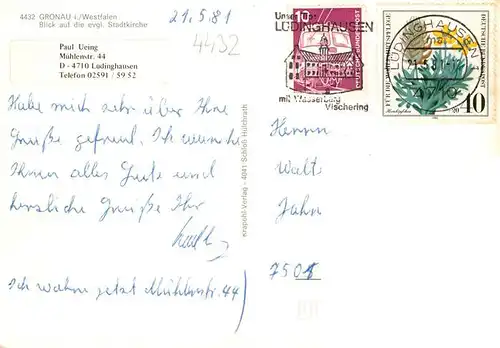 4432 GRONAU i./Westfalen
Blick auf die evgl. Stadtkirche
21.5.81
4432
Paul Ueing
Mühlenstr. 44
D - 4710 Lüdinghausen
Telefon 02591 / 59 52
Habe mich sehr über Ihre
Grüße gefreut. Ich wünsche
Ihnen alles Gute und
herzliche Grüße Ihr
Ich wohne jetzt Mühlenstr. 44)
krapohl-Verlag - 4041 Schloß Hülchrath
Unser
LÜDINGHAUSEN
mit Wasserburg
Vischering
10
DEUTSCHE BUNDESPOST
LÜDINGHAUSEN
21.5.81
4710
FÜR DIE WOHLFAHRTSPFLEGE
DEUTSCHE BUNDESPOST
40
Herrn
Jahn
7501